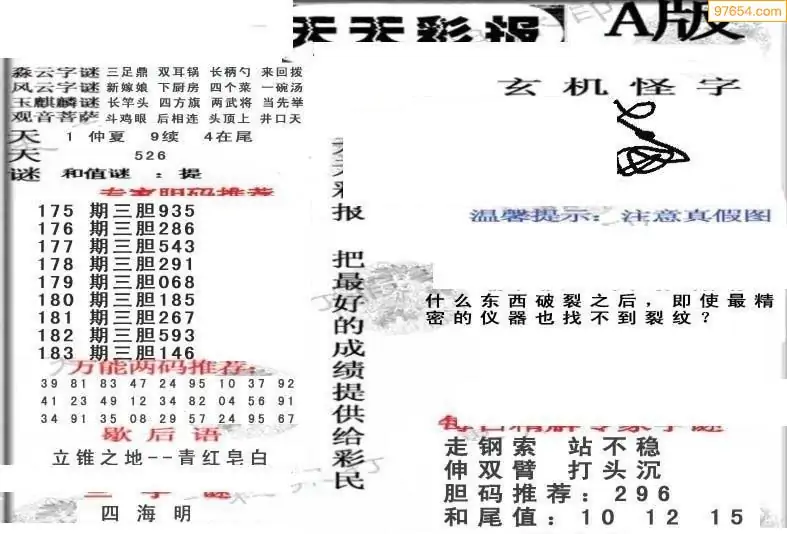 天天彩报
A版
97654.com
森云字谜 三足鼎 双耳锅 长柄勺 来回拨
风云字谜 新嫁娘 下厨房 四个菜 一碗汤
玉麒麟谜 长竿头 四方旗 两武将 当先举
观音菩萨 斗鸡眼 后相连 头顶上 井口天
天 1 仲夏 9续 4在尾
天 526
谜 和值谜 : 提
专家胆码推荐
175 期三胆935
176 期三胆286
177 期三胆543
178 期三胆291
179 期三胆068
180 期三胆185
181 期三胆267
182 期三胆593
183 期三胆146
万能两码推荐:
39 81 83 47 24 95 10 37 92
41 23 49 12 34 82 04 56 91
34 91 35 08 29 57 24 95 67
歇后语
立锥之地--青红皂白
三字谜
四海明
天天彩报 把最好的成绩提供给彩民
玄机怪字
温馨提示: 注意真假图
什么东西破裂之后，即使最精
密的仪器也找不到裂纹？
每日精解专家字谜
走钢索 站不稳
伸双臂 打头沉
胆码推荐: 296
和尾值: 10 12 15